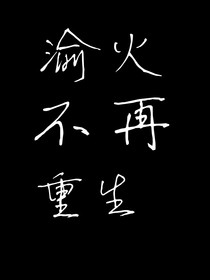 渝火
不再
重生